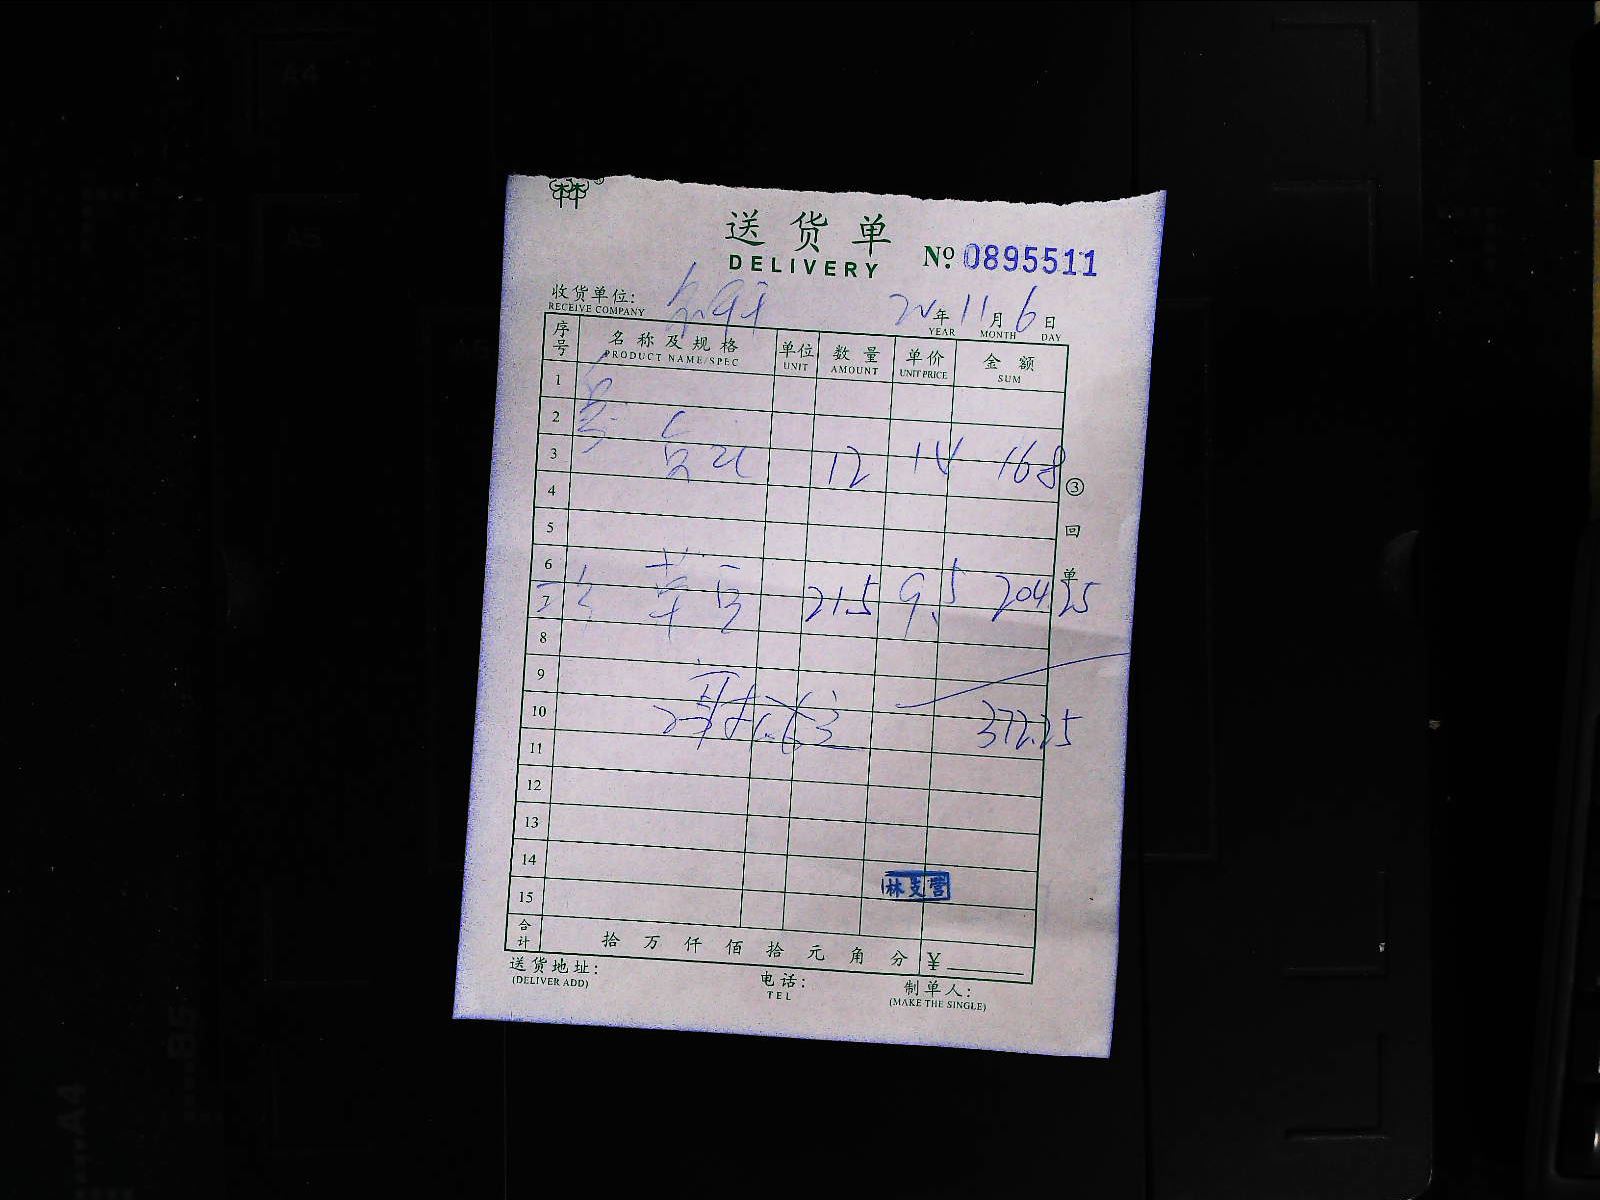 送货单
DELIVERY
No. 0895511
收货单位:
RECEIVE COMPANY
年 11 月 6 日
YEAR MONTH DAY
序号 名称及规格 单位 数量 单价 金额
PRODUCT NAME/SPEC UNIT AMOUNT UNIT PRICE SUM
1
2
3 12 14 168
4
5
6
7 21.5 9.5 204.25
8
9
10 372.25
11
12
13
14
15
③回单
林支营
合计 拾 万 仟 佰 拾 元 角 分 ¥
送货地址: 电话: 制单人:
(DELIVER ADD) TEL (MAKE THE SINGLE)